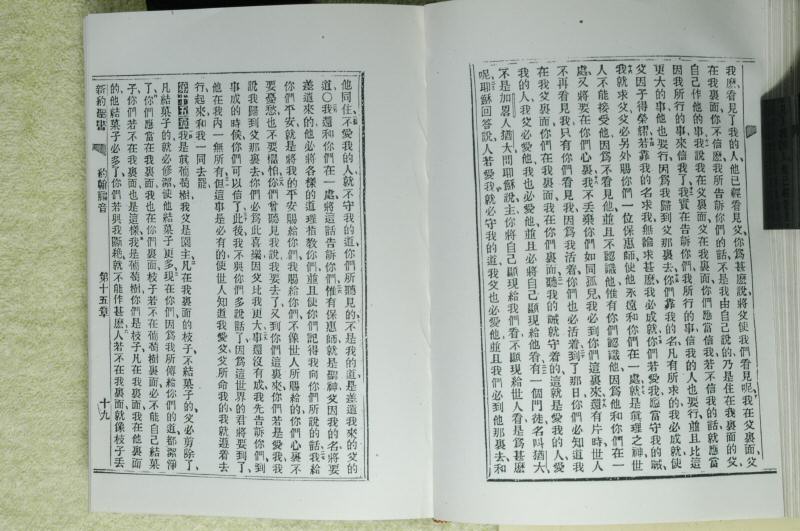 我麽看見了我的人、他已經看見父、你爲甚麽說將父使我們看見呢、我在父裏面、父
在我裏面、你不信麽、我所告訴你們的話、不是我由自己說的、乃是住在我裏面的父、
自己作他的事、我說我在父裏面、父在我裏面、你們應當信我、若不信我的話、就應當
因我所行的事來信我了、我實在告訴你們、我所行的事、信我的人也要行、並且比這
更大的事、他也要行、因爲我歸到父那裏去、你們靠我的名、凡有所求的、我必成就、使
父因子得榮耀、若靠我的名求我、無論求甚麽、我必成就、你們若愛我、應當守我的誡、
我就求父、父必另外賜你們一位保惠師、使他永遠和你們在一處、就是眞理之神、世
人不能接受他、因爲不看見他、並且不認識他、惟有你們認識他、因爲他和你們在一
處、又將要在你們心裏、我不丟棄你們如同孤兒、我必到你們這裏來、還有片時、世人
不再看見我、只有你們看見我、因爲我活着、你們也必活着、到了那日、你們必知道我
在我父裏面、你們在我裏面、我在你們裏面、聽我的誡就守着的、這就是愛我的人、愛
我的人、我父必愛他、我也必愛他、並且必將自己顯現給他看、有一個門徒名叫猶大、
不是加畧人猶大、問耶穌說、主你將自己顯現給我們看、不顯現給世人看、是爲甚麽
呢、耶穌回答說、人若愛我、就必守我的道、我父也必愛他、並且我們必到他那裏去、和
他同住、不愛我的人、就不守我的道、你們所聽見的、不是我的道、是差遣我來的父的
道、〇我還和你們在一處、將這話告訴你們、惟有保惠師、就是聖神、父因我的名、將要
差遣來的、他必將各樣的道理指敎你們、並且使你們記得我向你們所說的話、我給
你們平安、就是將我的平安賜給你們、我賜給你們、不像世人所賜給的、你們心裏不
要憂愁、也不要懼怕、你們曾聽見我說、我要去了、又到你們這裏來、你們若是愛我、我
說我歸到父那裏去、你們必爲此喜樂、因父比我更大、事還沒有成、我先告訴你們、到
事成的時候、你們可以信了、此後我不與你們多說話了、因爲這世界的君將要到了、
他在我內一無所有、但這事是必有的、使世人知道我愛父、父所命我的、我就遵着去
行、起來和我一同去罷、
第十五章 我是眞葡萄樹、我父是園主、凡在我裏面的枝子、不結菓子的、父必剪除了、
凡結菓子的、就必修潔、使他結菓子更多、現在你們因爲我所傳給你們的道、都潔淨
了、你們應當在我裏面、我也在你們裏面、枝子若不在葡萄樹裏面、必不能自己結菓
子、你們若不在我裏面、也是這樣、我是葡萄樹、你們是枝子、凡在我裏面、我在他裏面
的、他結菓子必多了、你們若與我隔絕、就不能作甚麽、人若不在我裏面、就像枝子丟
新約聖書 約翰福音 第十五章 十九